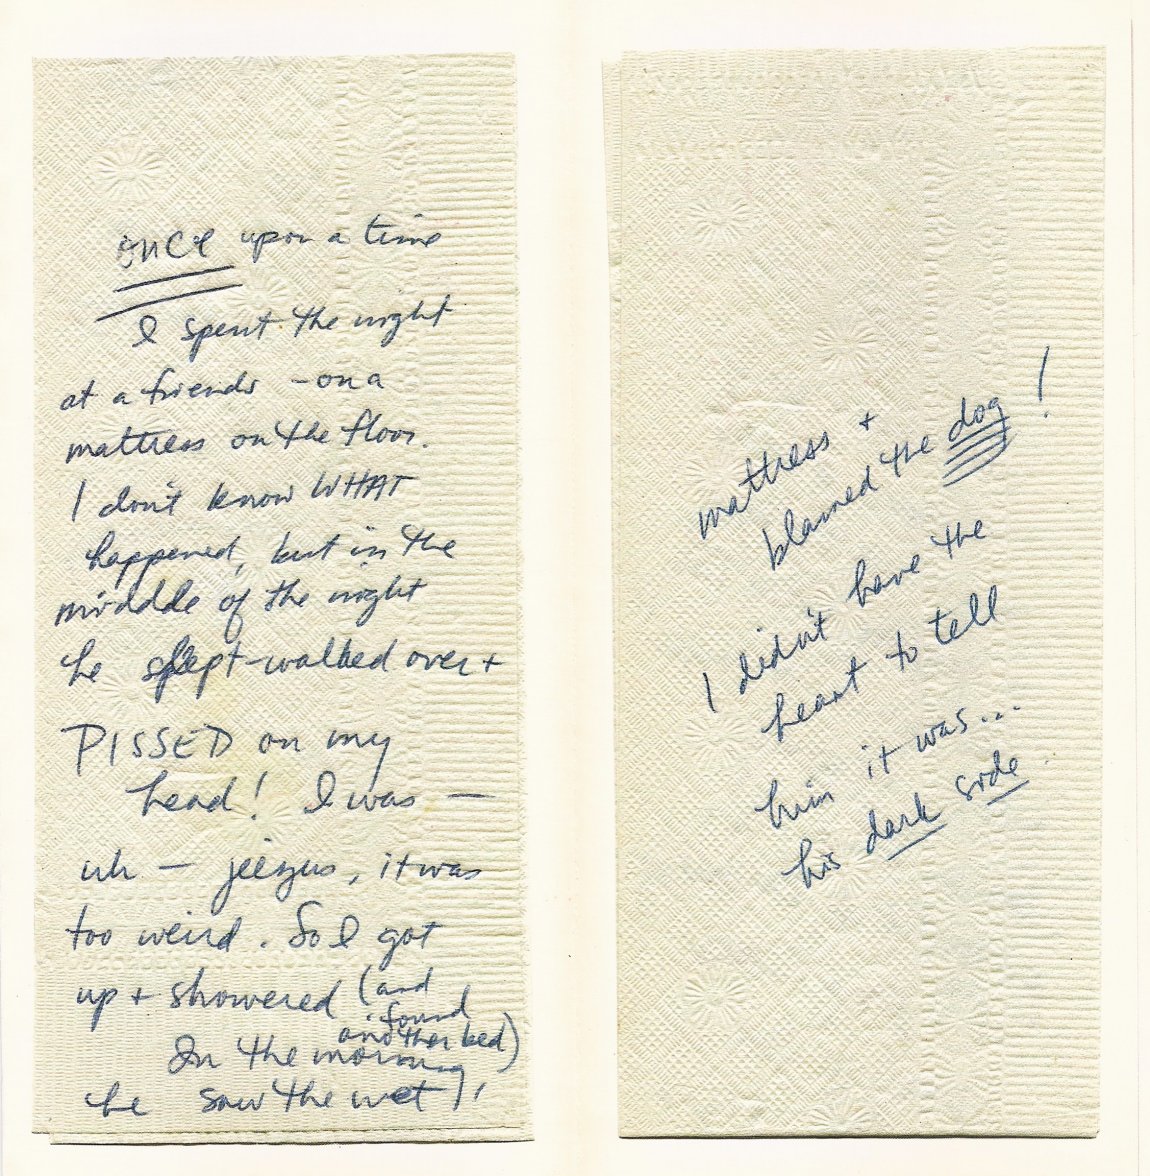 ONCE upon a time
I spent the night
at a friends - on a
mattress on the floor.
I don't know WHAT
happened, but in the
middle of the night
he slept-walked over +
PISSED on my
head! I was —
uh — jeezus, it was
too weird. So I got
up + showered (and
found
another bed)
In the morning,
he saw the wet
mattress +
blamed the dog!
I didn't have the
heart to tell
him it was...
his dark side.